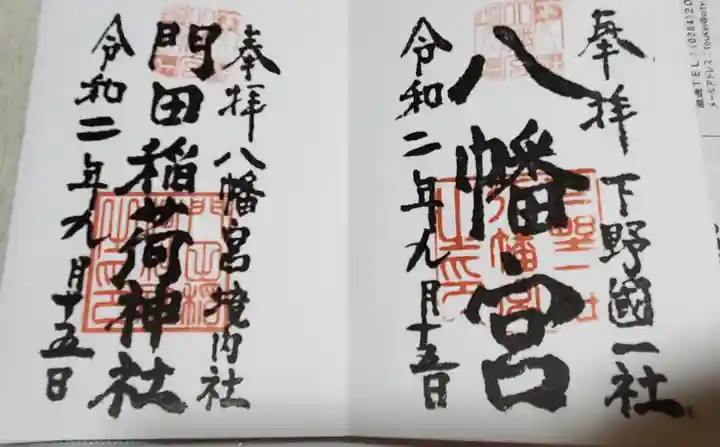 奉拝 下野國一社
八幡宮
令和二年九月十五日
奉拝 八幡宮境内社
門田稲荷神社
令和二年九月十五日